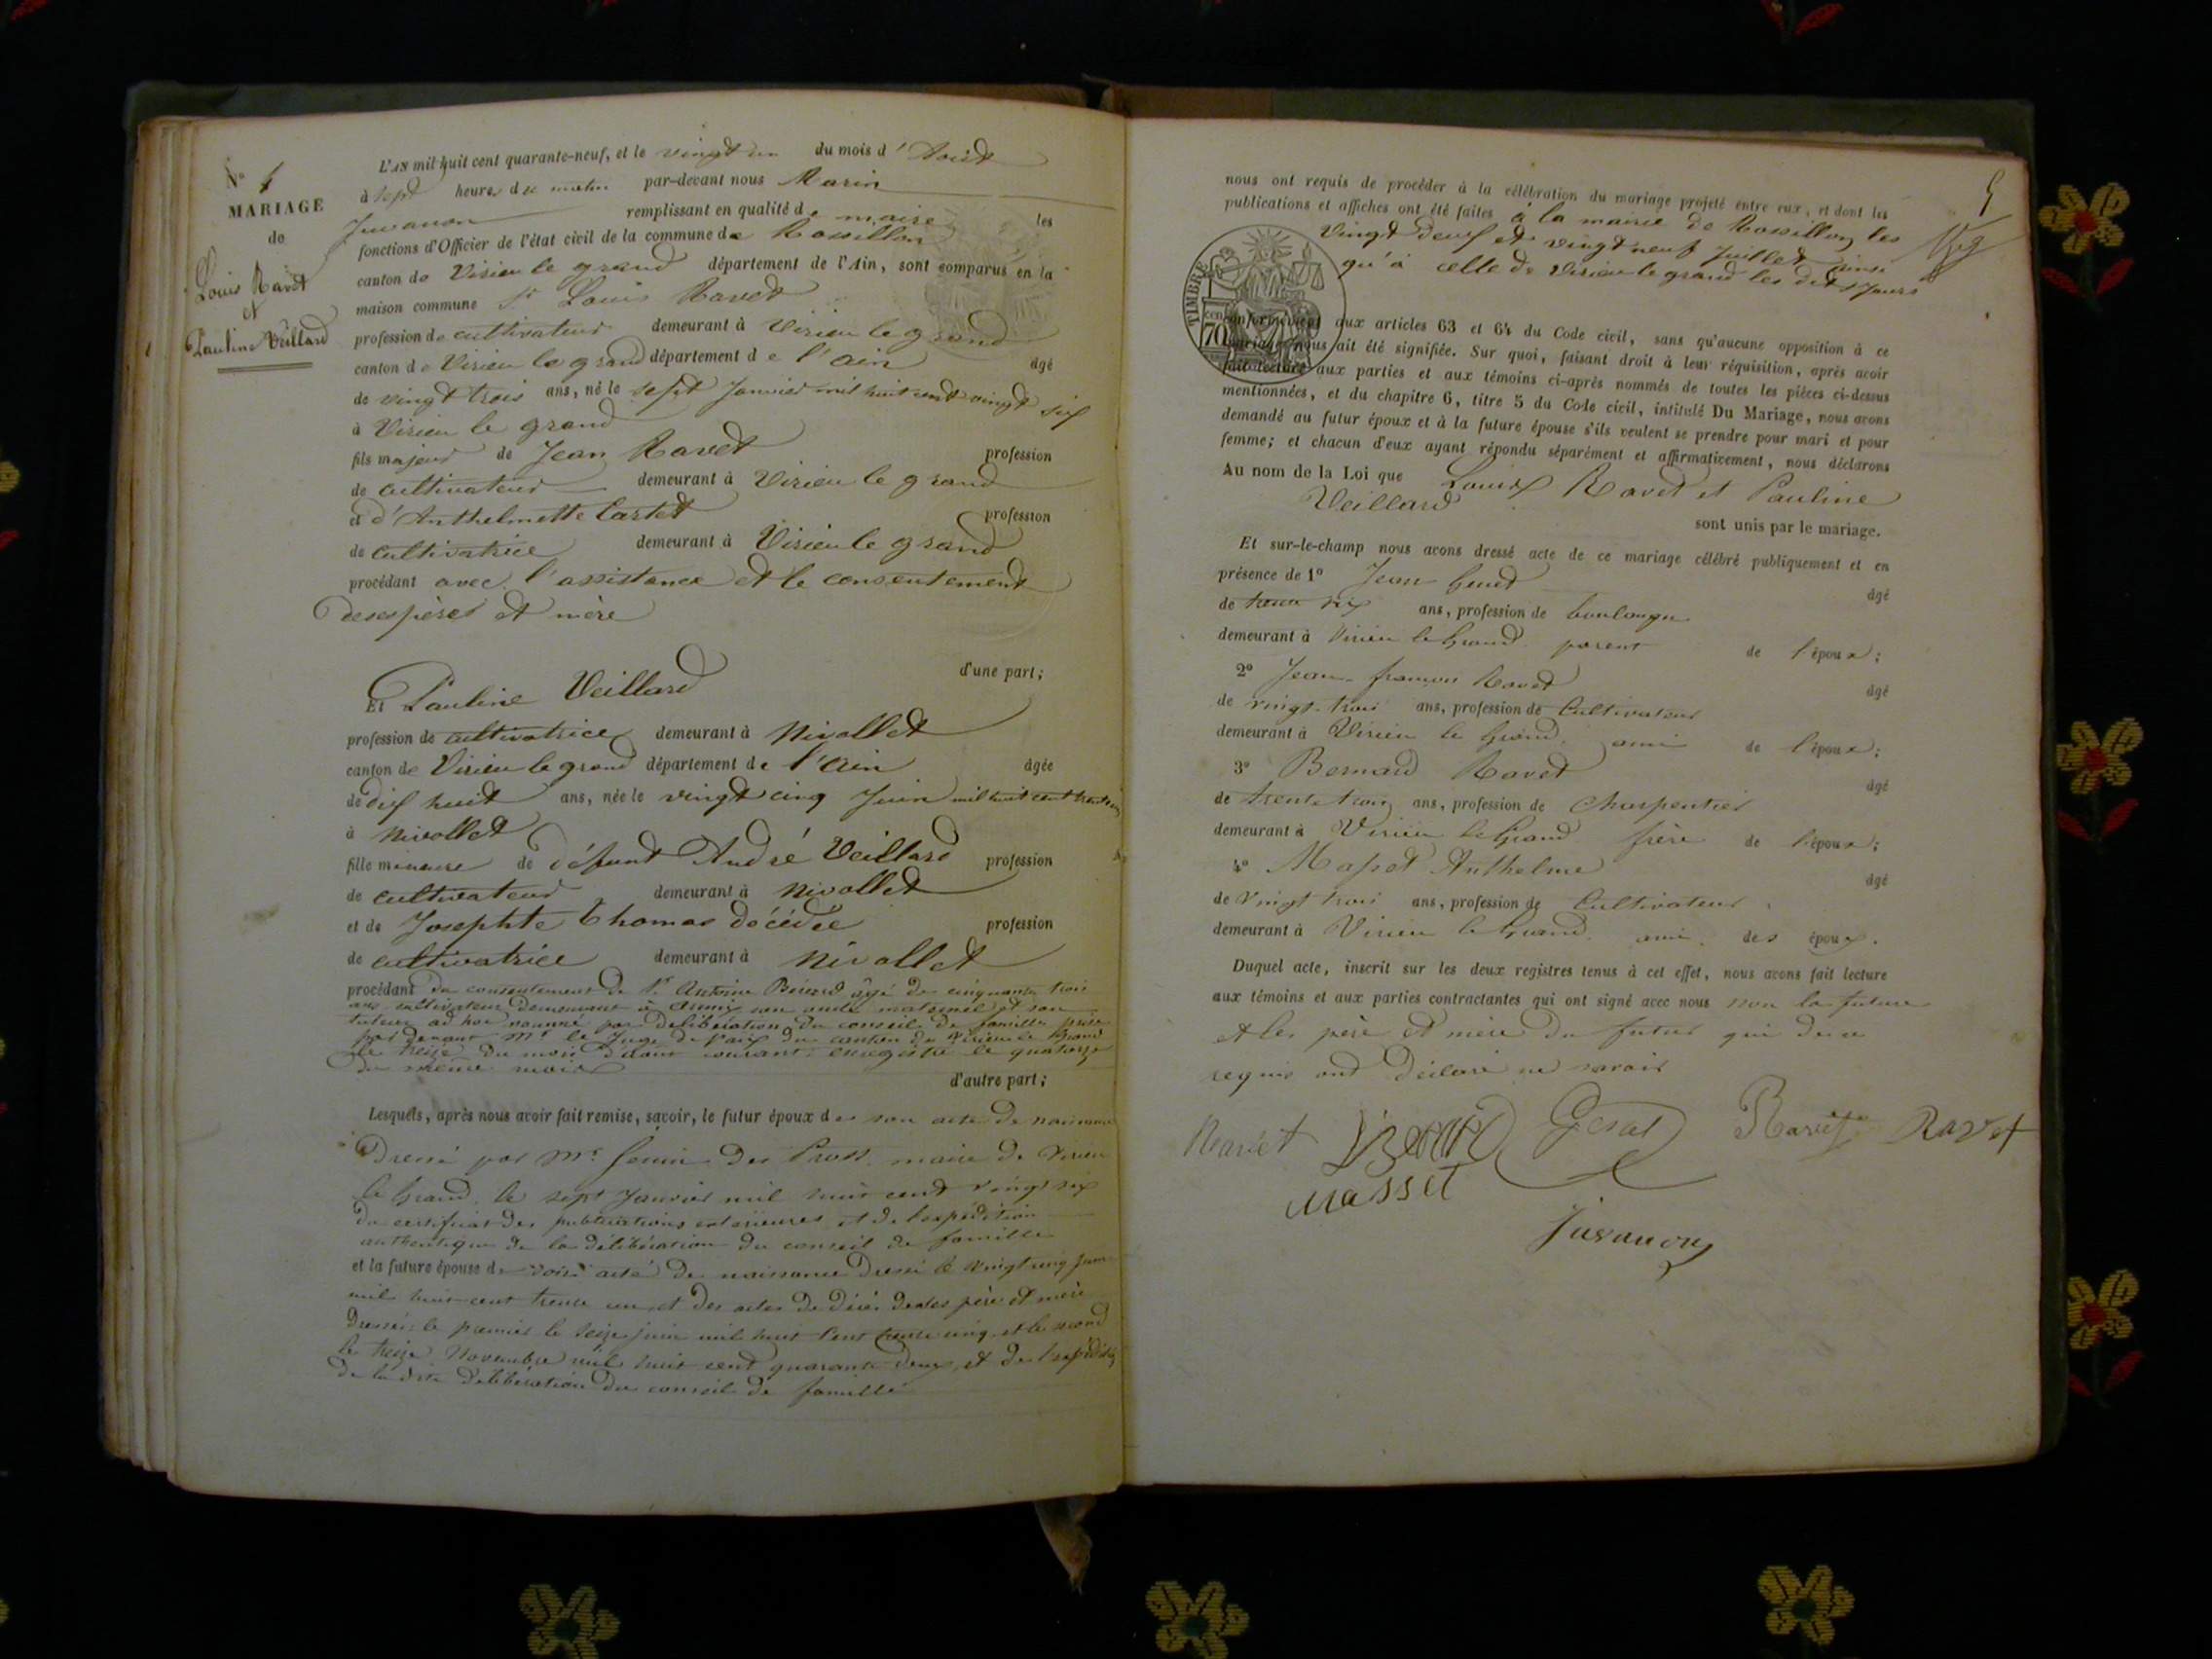 N° 4
MARIAGE
de
Louis Ravet
et
Pauline Veillard
L'AN mil huit cent quarante-neuf, et le vingt un du mois d'Août
à sept heures du matin par-devant nous Marin
Juvanon remplissant en qualité de maire les
fonctions d'Officier de l'état civil de la commune de Rossillon
canton de Virieu le grand département de l'Ain, sont comparus en la
maison commune Sr Louis Ravet
profession de cultivateur demeurant à Virieu le grand
canton de Virieu le grand département de l'ain âgé
de vingt trois ans, né le sept Janvier mil huit cent vingt six
à Virieu le grand
fils majeur de Jean Ravet profession
de cultivateur demeurant à Virieu le grand
et d'Anthelmette Cartet profession
de cultivatrice demeurant à Virieu le grand
procédant avec l'assistance et le consentement
de ses père et mère
d'une part;
Et Pauline Veillard
profession de cultivatrice demeurant à Nivollet
canton de Virieu le grand département de l'ain âgée
de dix huit ans, née le vingt cinq Juin mil huit cent trente un
à Nivollet
fille mineure de défunt André Veillard profession
de cultivateur demeurant à Nivollet
et de Josephte Thomas décédée profession
de cultivatrice demeurant à Nivollet
procédant du consentement de Sr Antoine âgé de cinquante trois
ans cultivateur demeurant à son oncle maternel et son
tuteur ad hoc nommé par délibération du conseil de famille prise
par devant Mr le Juge de Paix du canton de Virieu le Grand
le treize du mois d'août courant enregistré le quatorze
du même mois
d'autre part;
Lesquels, après nous avoir fait remise, savoir, le futur époux de son acte de naissance
Dressé par Mr maire de Virieu
le Grand, le sept Janvier mil huit cent vingt six
du certificat des publications extérieures et de l'expédition
authentique de la délibération du conseil de famille
et la future épouse de son acte de naissance dressé le vingt cinq Juin
mil huit cent trente un et des actes de décès de ses père et mère
dressés le premier le seize juin mil huit cent trente cinq et le second
le treize Novembre mil huit cent quarante deux et de l'expédition
de la dite délibération du conseil de famille
5
nous ont requis de procéder à la célébration du mariage projeté entre eux, et dont les
publications et affiches ont été faites à la mairie de Rossillon les
vingt deux et vingt neuf Juillet ainsi
qu'à celle de Virieu le grand les dits Jours
TIMBRE
70
conformément aux articles 63 et 64 du Code civil, sans qu'aucune opposition à ce
mariage nous ait été signifiée. Sur quoi, faisant droit à leur réquisition, après avoir
fait lecture aux parties et aux témoins ci-après nommés de toutes les pièces ci-dessus
mentionnées, et du chapitre 6, titre 5 du Code civil, intitulé Du Mariage, nous avons
demandé au futur époux et à la future épouse s'ils veulent se prendre pour mari et pour
femme; et chacun d'eux ayant répondu séparément et affirmativement, nous déclarons
Au nom de la Loi que Louis Ravet et Pauline
Veillard
sont unis par le mariage.
Et sur-le-champ nous avons dressé acte de ce mariage célébré publiquement et en
présence de 1° Jean âgé
de trente six ans, profession de boulanger
demeurant à Virieu le Grand parent de l'époux;
2° Jean-françois Ravet âgé
de vingt-trois ans, profession de Cultivateur
demeurant à Virieu le Grand ami de l'époux;
3° Bernard Ravet âgé
de trente trois ans, profession de Charpentier
demeurant à Virieu le Grand frère de l'époux;
4° Masset Anthelme âgé
de vingt trois ans, profession de Cultivateur
demeurant à Virieu le Grand ami des époux.
Duquel acte, inscrit sur les deux registres tenus à cet effet, nous avons fait lecture
aux témoins et aux parties contractantes qui ont signé avec nous non la future
et les père et mère du futur qui de ce
requis ont déclaré ne savoir
Ravet Ravet Ravet
Masset
Juvanon